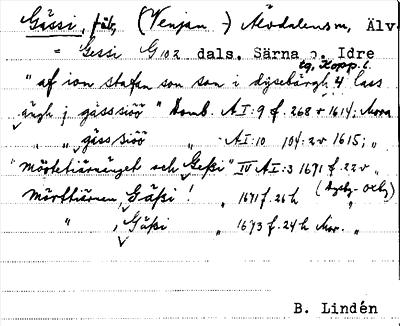 Gässi, (Venjan -) Älvdalensm, Älv
= Gessi G 102 dals. Särna o. Idre
tg, Kopp. l.
" af ion stafan son son i dysebärgh 4 lass
ängh j gässsiöö " Domb. A I:9 f. 268 v 1614; Mora
" " gässsiöö " A I:10 104: 2v 1615; "
" mörtetiärnänget och Geßi " IV A I:3 1671 f. 22 v "
mörttiärnen, Gäßi ! " 1671 f. 26 h
" , Gäßi " 1673 f. 24 h Mor. "
B. Lindén